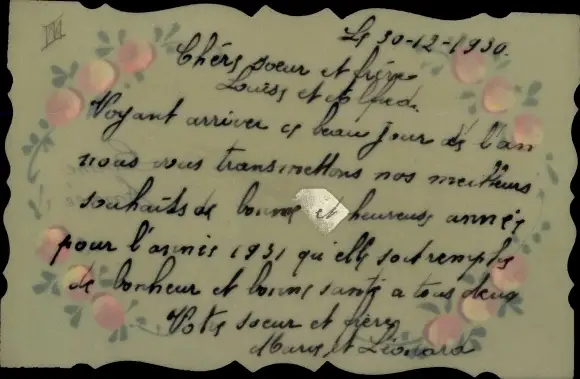 Le 30-12-1930.
Chère soeur et frère
Louise et Alfred.
Voyant arriver ce beau jour de l'an
nous vous transmettons nos meilleurs
souhaits de bonne et heureuse année
pour l'année 1931 qu'elle soit remplie
de bonheur et bonne santé a tous deux
Votre soeur et frère
Marie et Léonard